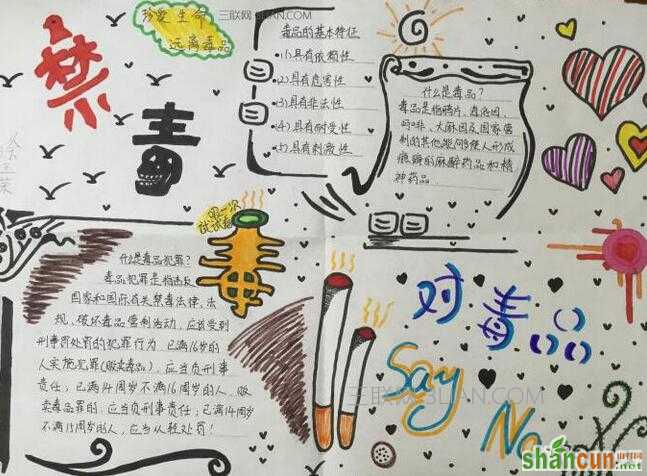 珍爱生命
远离毒品
禁
毒
毒品的基本特征
(1)具有依赖性
(2)具有危害性
(3)具有非法性
(4)具有耐受性
(5)具有刺激性
什么是毒品?
毒品是指鸦片、海洛因、
吗啡、大麻因及国家管
制的其他
瘾癖的麻醉药品和精
神药品
试试看
毒
什么是毒品犯罪?
毒品犯罪是指违反
国家和国际有关禁毒法律、法
规,破坏毒品管制活动,应该受到
刑事罚处罚的犯罪行为.已满16岁的
人实施犯罪(贩卖毒品),应当负刑事
责任;已满14周岁不满16周岁的人,贩
卖毒品罪的,应当负刑事责任;已满14周岁
不满18周岁的人,应当从轻处罚!
对毒品
Say
No
三联网 3LIAN.COM
三联网 3LIAN.COM
shancun